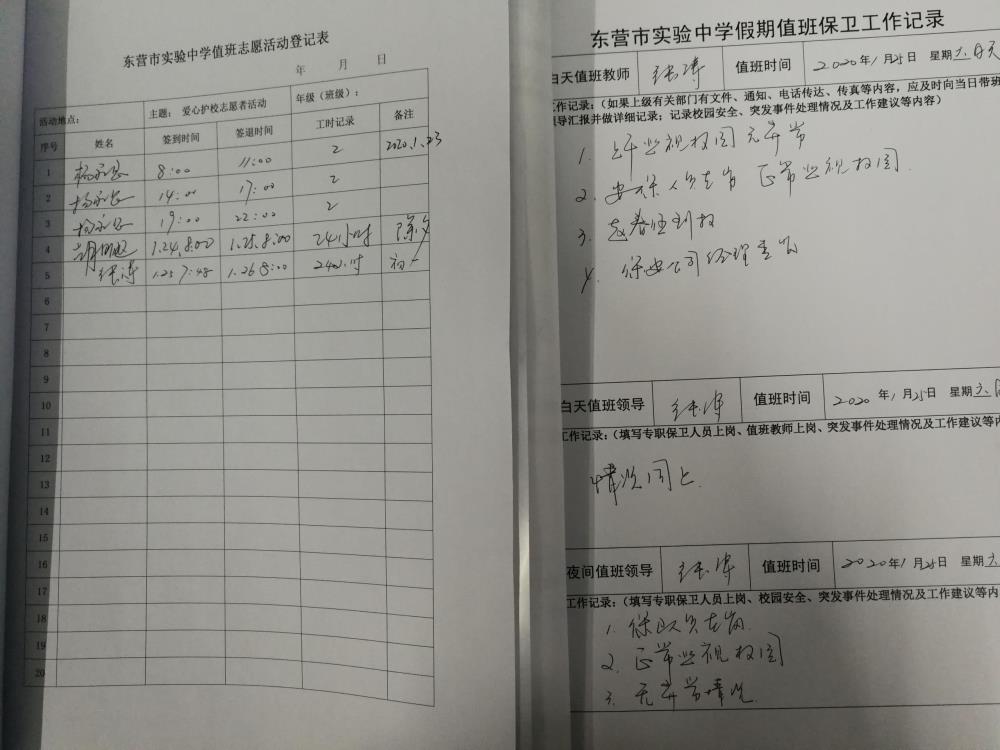 东营市实验中学值班志愿活动登记表
年 月 日
活动地点： 主题： 爱心护校志愿者活动 年级（班级）：
序号 姓名 签到时间 签退时间 工时记录 备注
1 8:00 11:00 2 2020.1.23
2 14:00 17:00 2
3 19:00 22:00 2
4 1.24.8:00 1.25.8:00 24小时 除夕
5 张涛 1.25 7:48 1.26 8:00 24小时 初一
6
7
8
9
10
11
12
13
14
15
16
17
18
19
20
东营市实验中学假期值班保卫工作记录
白天值班教师 张涛 值班时间 2020年1月25日 星期六 白天
工作记录：（如果上级有关部门有文件、通知、电话传达、传真等内容，应及时向当日带班
领导汇报并做详细记录；记录校园安全、突发事件处理情况及工作建议等内容）
1. 上午监视校园无异常
2. 安保人员在岗 正常监视校园.
3. 到校
4. 保安公司经理查岗
白天值班领导 张涛 值班时间 2020年1月25日 星期六
工作记录：（填写专职保卫人员上岗、值班教师上岗、突发事件处理情况及工作建议等内
情况同上.
夜间值班领导 张涛 值班时间 2020年1月25日 星期六
工作记录：（填写专职保卫人员上岗、校园安全、突发事件处理情况及工作建议等内
1. 保安人员在岗.
2. 正常监视校园
3. 无异常情况.